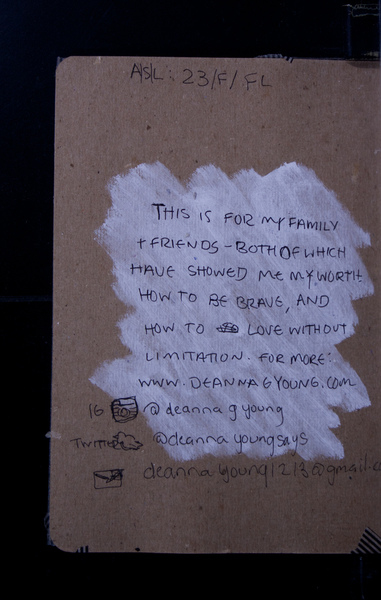 A/S/L: 23/F/FL
THIS IS FOR MY FAMILY
+ FRIENDS - BOTH OF WHICH
HAVE SHOWED ME MY WORTH
HOW TO BE BRAVE, AND
HOW TO LOVE WITHOUT
LIMITATION. FOR MORE:
WWW.DEANNAGYOUNG.COM
IG @deannagyoung
TWITTER @deannayoungsays
deanna.young1213@gmail.c